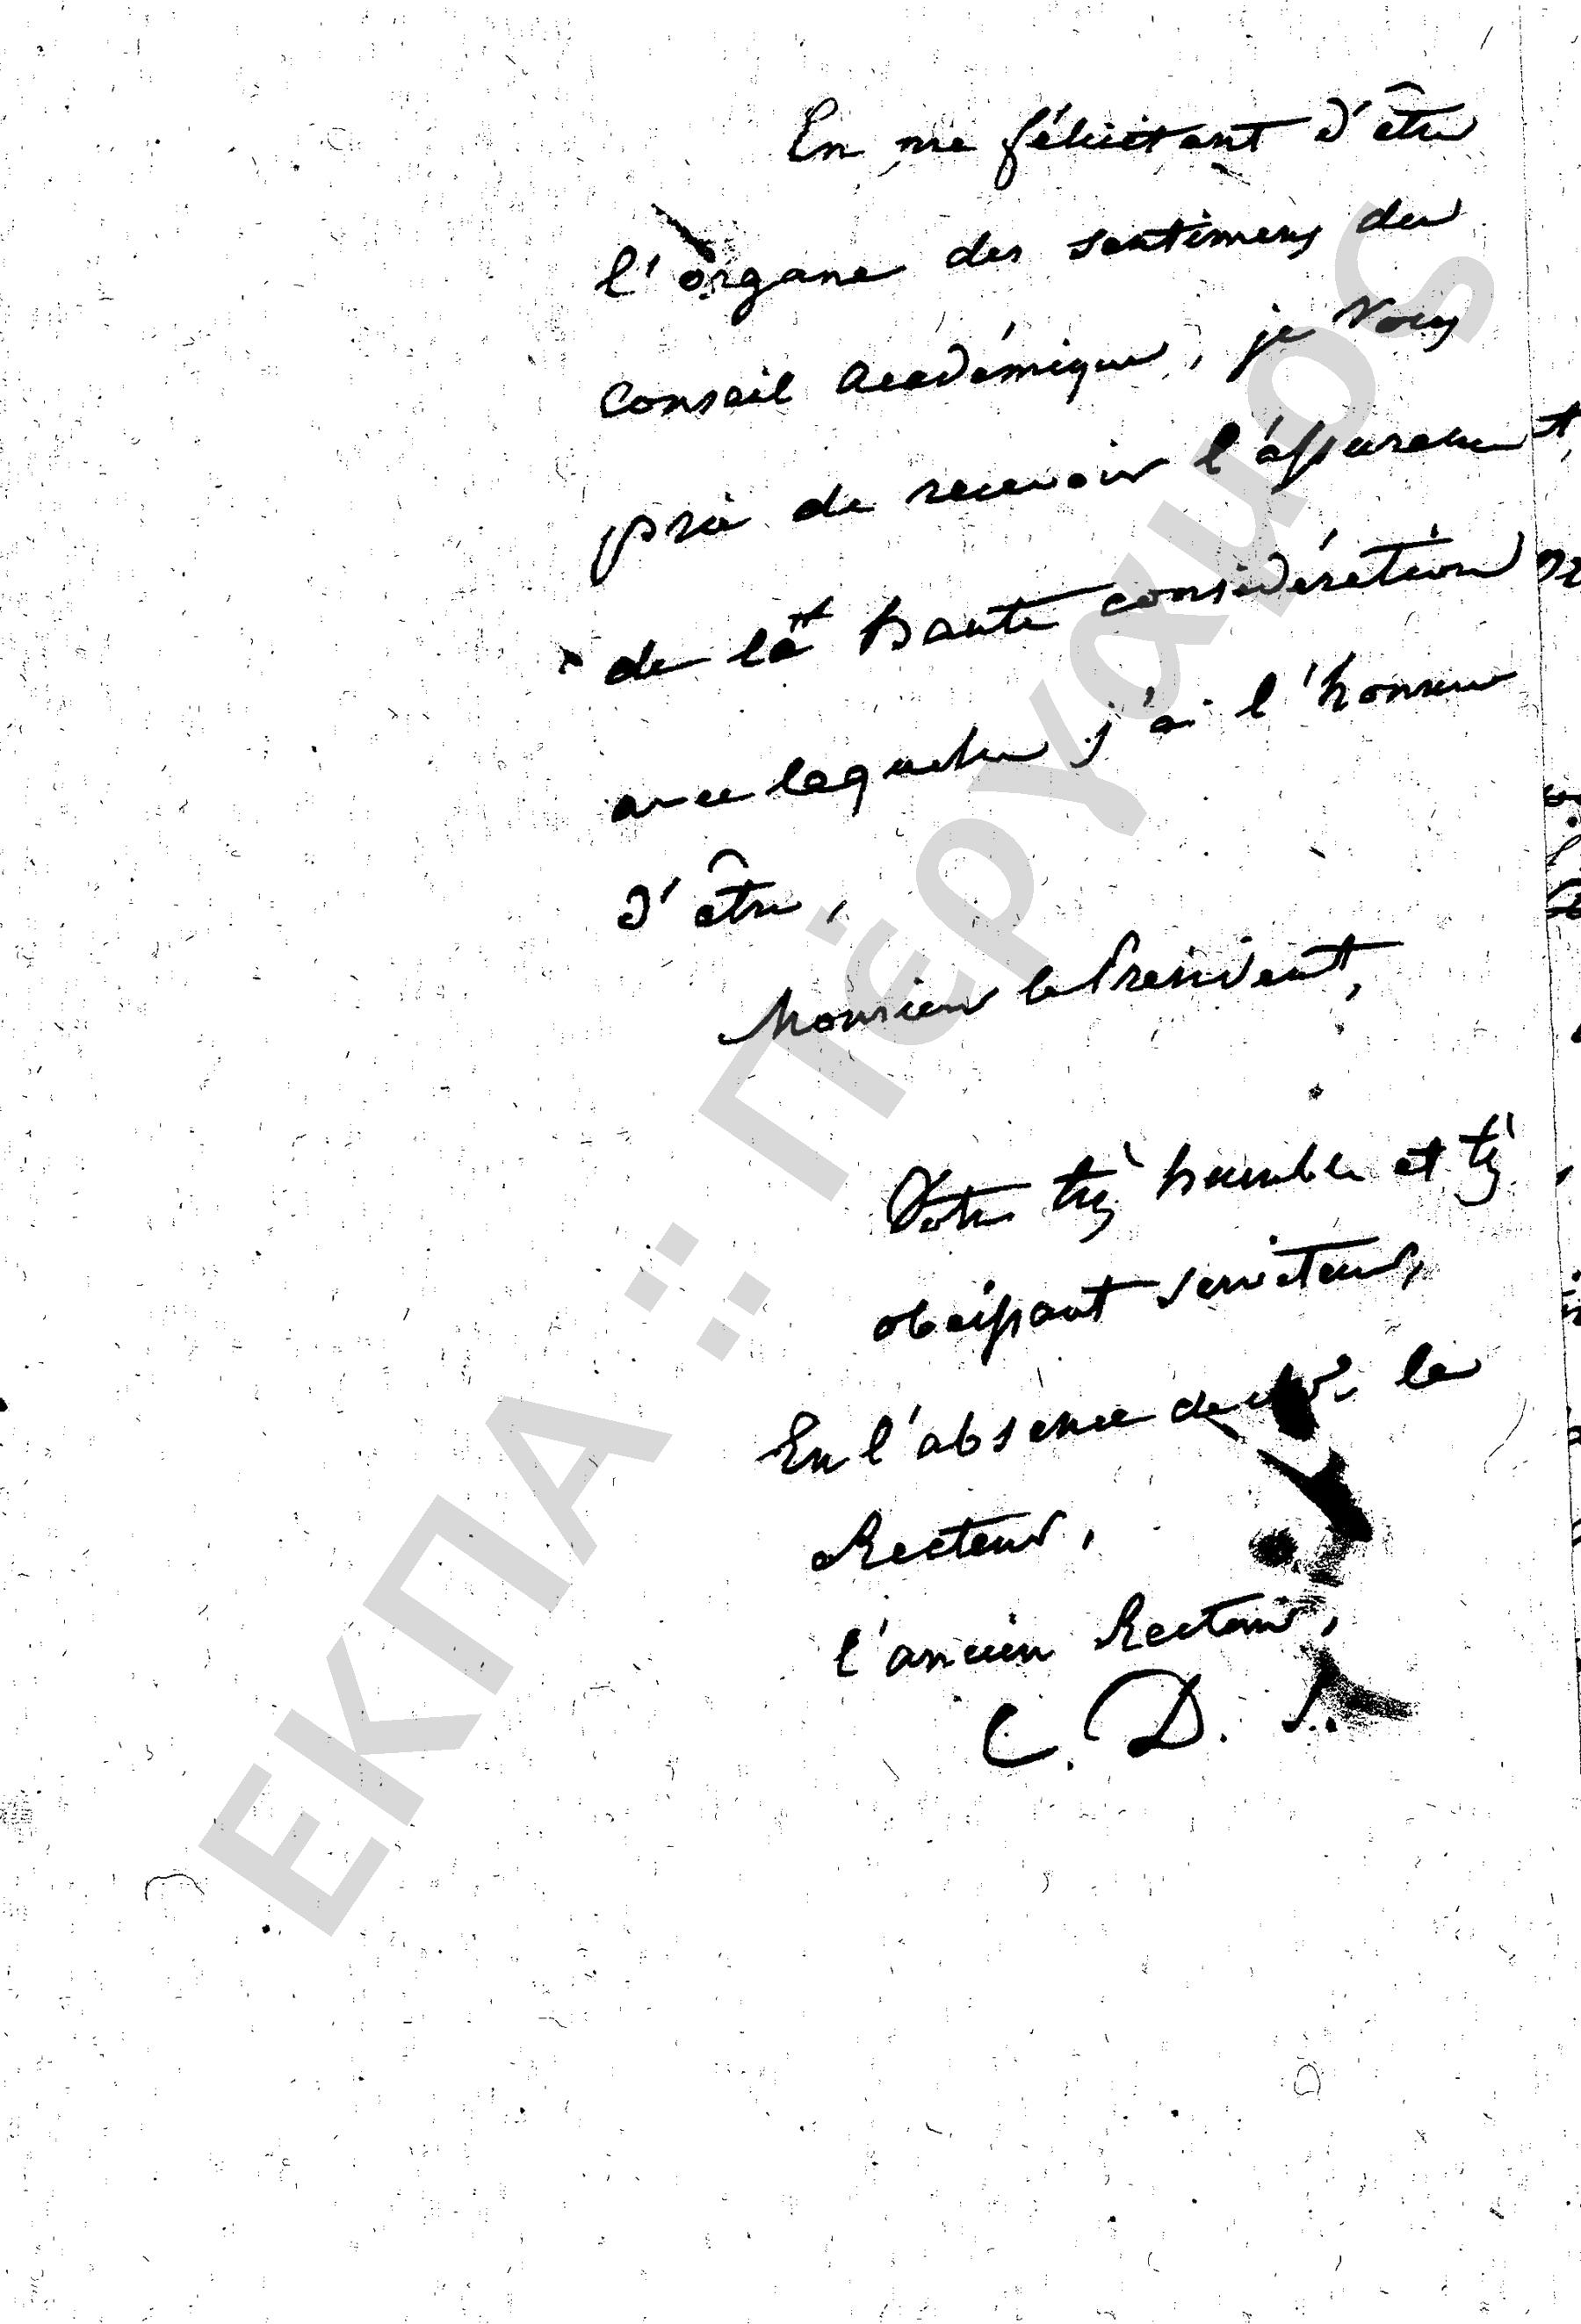 En me félicitant d'être
l'organe des sentimens du
Conseil Académique, je Vous
prie de recevoir l'assurance
de la haute considération
avec laquelle j'ai l'honneur
d'être,
Monsieur le Président,
Votre très humble et très
obéissant serviteur,
En l'absence de Mr. le
Recteur,
l'ancien Recteur,
C. D. S.
ΕΚΠΑ :: Πέργαμος